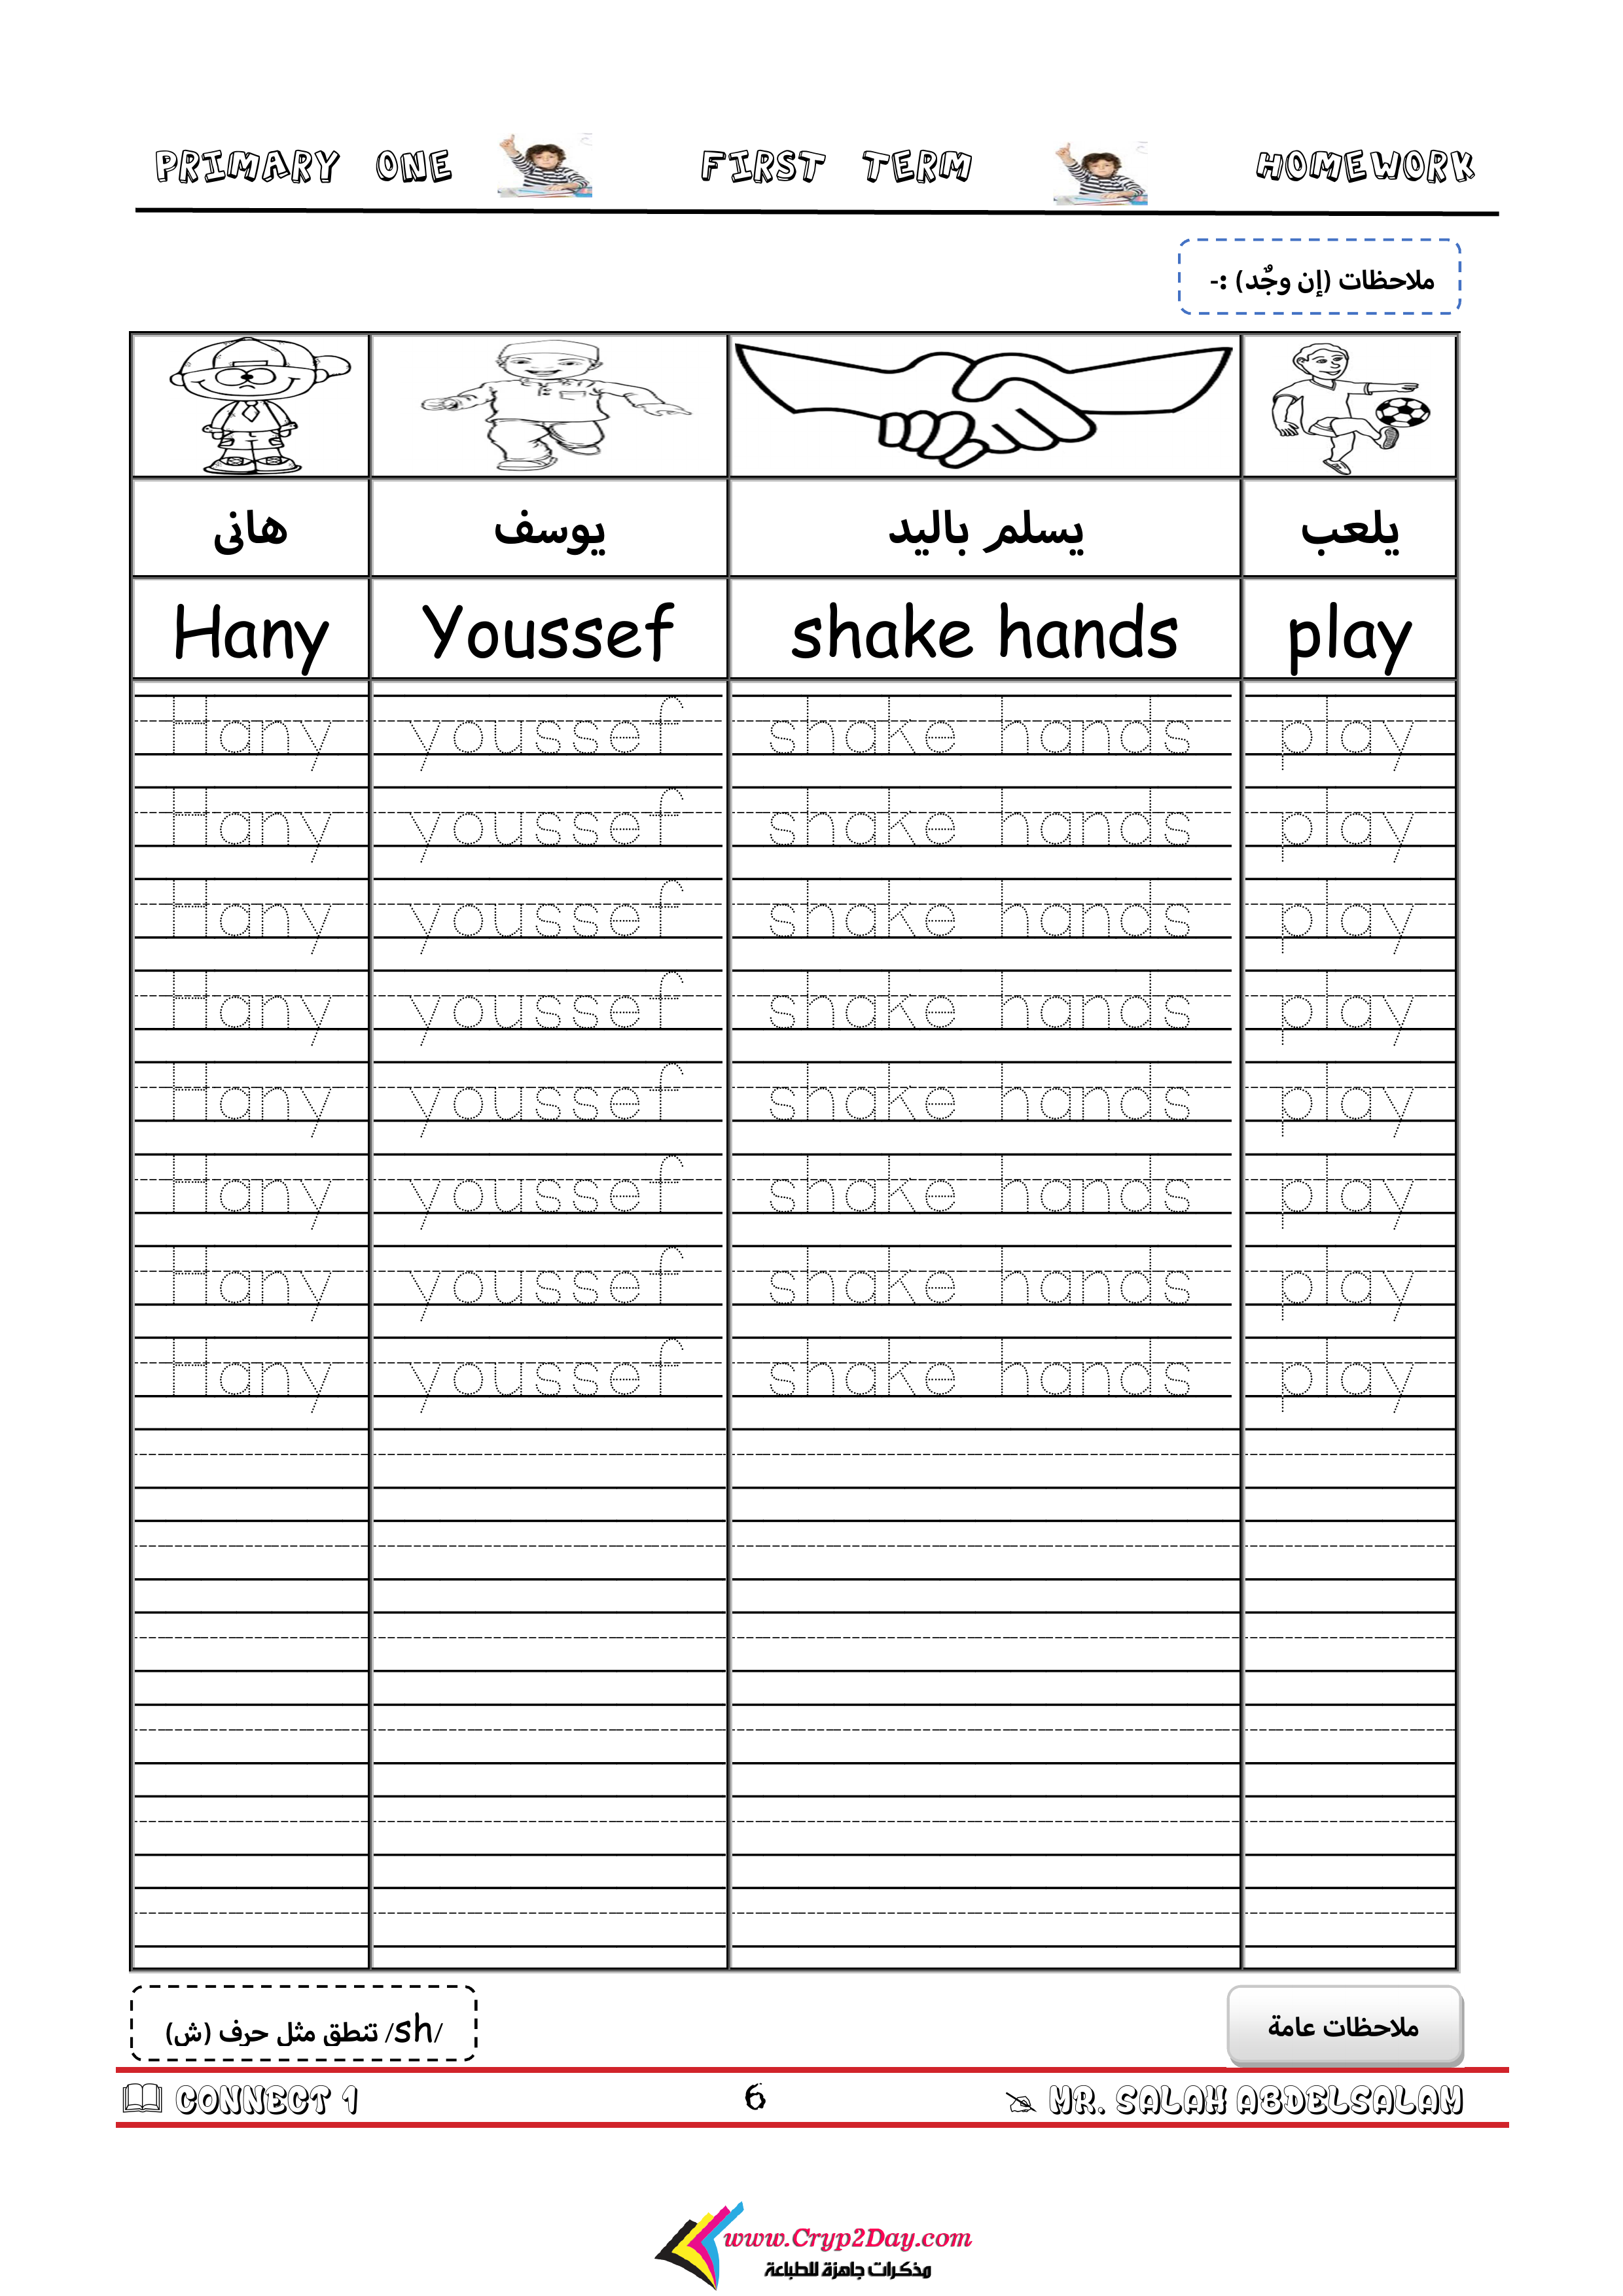 PRIMARY ONE FIRST TERM HOMEWORK
ملاحظات (إن وجٌد) :-
هانى يوسف يسلم باليد يلعب
Hany Youssef shake hands play
Hany youssef shake hands play
Hany youssef shake hands play
Hany youssef shake hands play
Hany youssef shake hands play
Hany youssef shake hands play
Hany youssef shake hands play
Hany youssef shake hands play
Hany youssef shake hands play
/sh/ تنطق مثل حرف (ش)
ملاحظات عامة
CONNECT 1 6 MR. SALAH ABDELSALAM
www.Cryp2Day.com
مذكرات جاهزة للطباعة